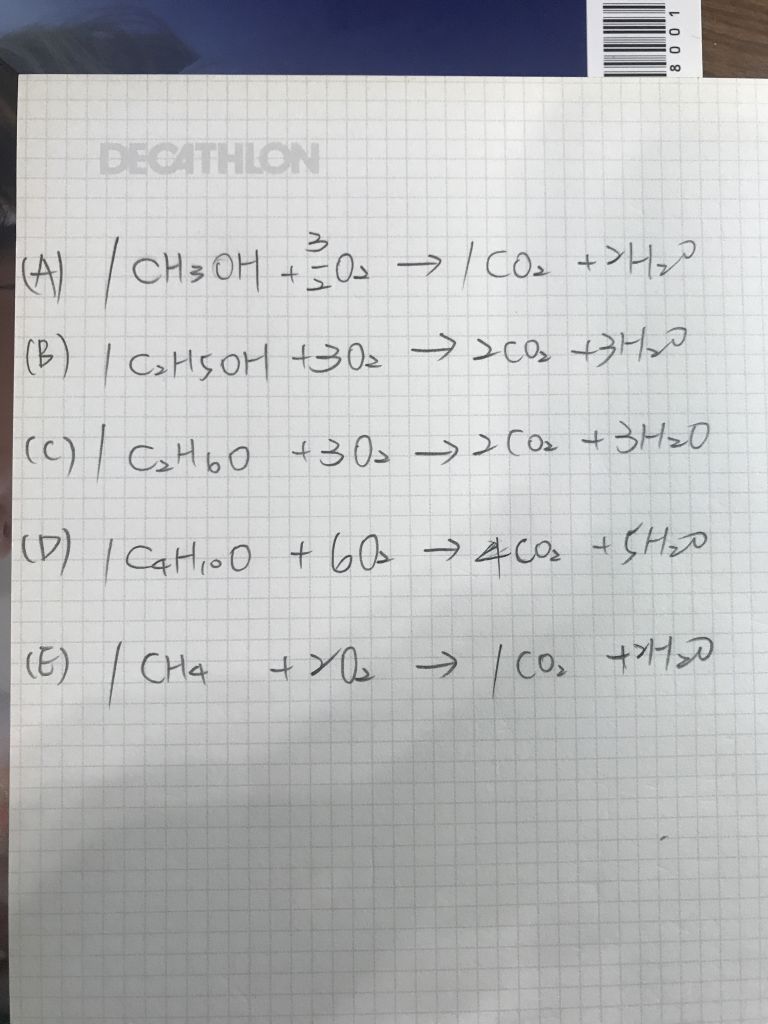 8001
DECATHLON
(A) 1 CH3OH + 3/2 O₂ → 1 CO₂ + 2H₂O
(B) 1 C₂H5OH + 3O₂ → 2CO₂ + 3H₂O
(C) 1 C₂H6O + 3O₂ → 2CO₂ + 3H₂O
(D) 1 C4H₁₀O + 6O₂ → 4CO₂ + 5H₂O
(E) 1 CH4 + 2O₂ → 1 CO₂ + 2H₂O